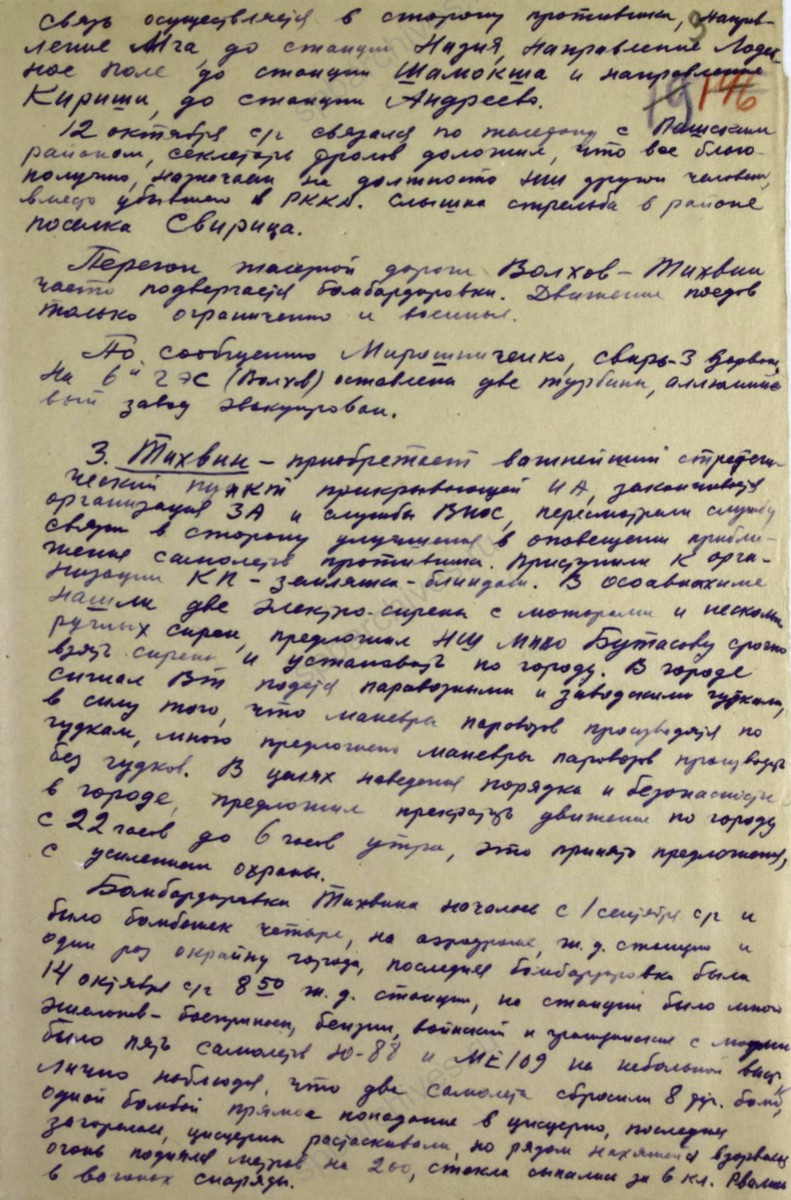 связь осуществляется в сторону противника, направ-
ление Мга, до станции Назия, направление Лодей
ное Поле до станции Шамокша и направление
Кириши, до станции Андреево.
19 146
12 октября с/г связался по телефону с Пашским
районом, секретарь Фролов доложил, что все благо-
получно, назначаем на должность НШ другой человек,
вместо убывшего в РККА. Слышна стрельба в районе
поселка Свирица.
Перегон железной дороги Волхов – Тихвин
часто подвергается бомбардировки. Движение поездов
только ограниченно и военные.
По сообщению Мирошниченко, Свирь-3 взорван,
на 6й ГЭС (Волхов) оставлены две турбины, аллюминие
вый завод эвакуирован.
3. Тихвин – приобретает важнейший стратеги-
ческий пункт прикрывающей ИА, заканчивается
организация ЗА и службы ВНОС, пересмотрели службу
связи в сторону улучшения в оповещении прибли-
жения самолетов противника. Приступили к орга-
низации КП – землянка-блиндаж. В осоавиахиме
нашли две электро-сирены с моторами и несколько
ручных сирен, предложил НШ МПВО Бутасову срочно
взять сирены и установить по городу. В городе
сигнал ВТ подается паровозными и заводскими гудками,
в силу того, что маневры паровозов производятся по
гудкам, мною предложено маневры паровозов производить
без гудков. В целях наведения порядка и безопасности
в городе, предложил прекратить движение по городу
с 22 часов до 6 часов утра, это принято предложение,
с усилением охраны.
Бомбардировка Тихвина началась с 1 сентября с/г и
было бомбежек четыре, на аэродроме, ж.д. станции и
один раз окрайну города, последняя бомбардировка была
14 октября с/г 8 50 ж.д. станции, на станции было много
эшелонов – боеприпасы, бензин, воинский и гражданские с людьми
было пять самолетов Ю-88 и МЕ109 на небольшой выс.
Лично наблюдал, что два самолета сбросили 8 фуг. бомб,
одной бомбой прямое попадание в цистерну, последняя
загорелась, цистерны растаскивали, но рядом находящиеся взорвались
огонь поднялся метров на 200, стекла сыпались за 6 кл. Рвались
в вагонах снаряды.